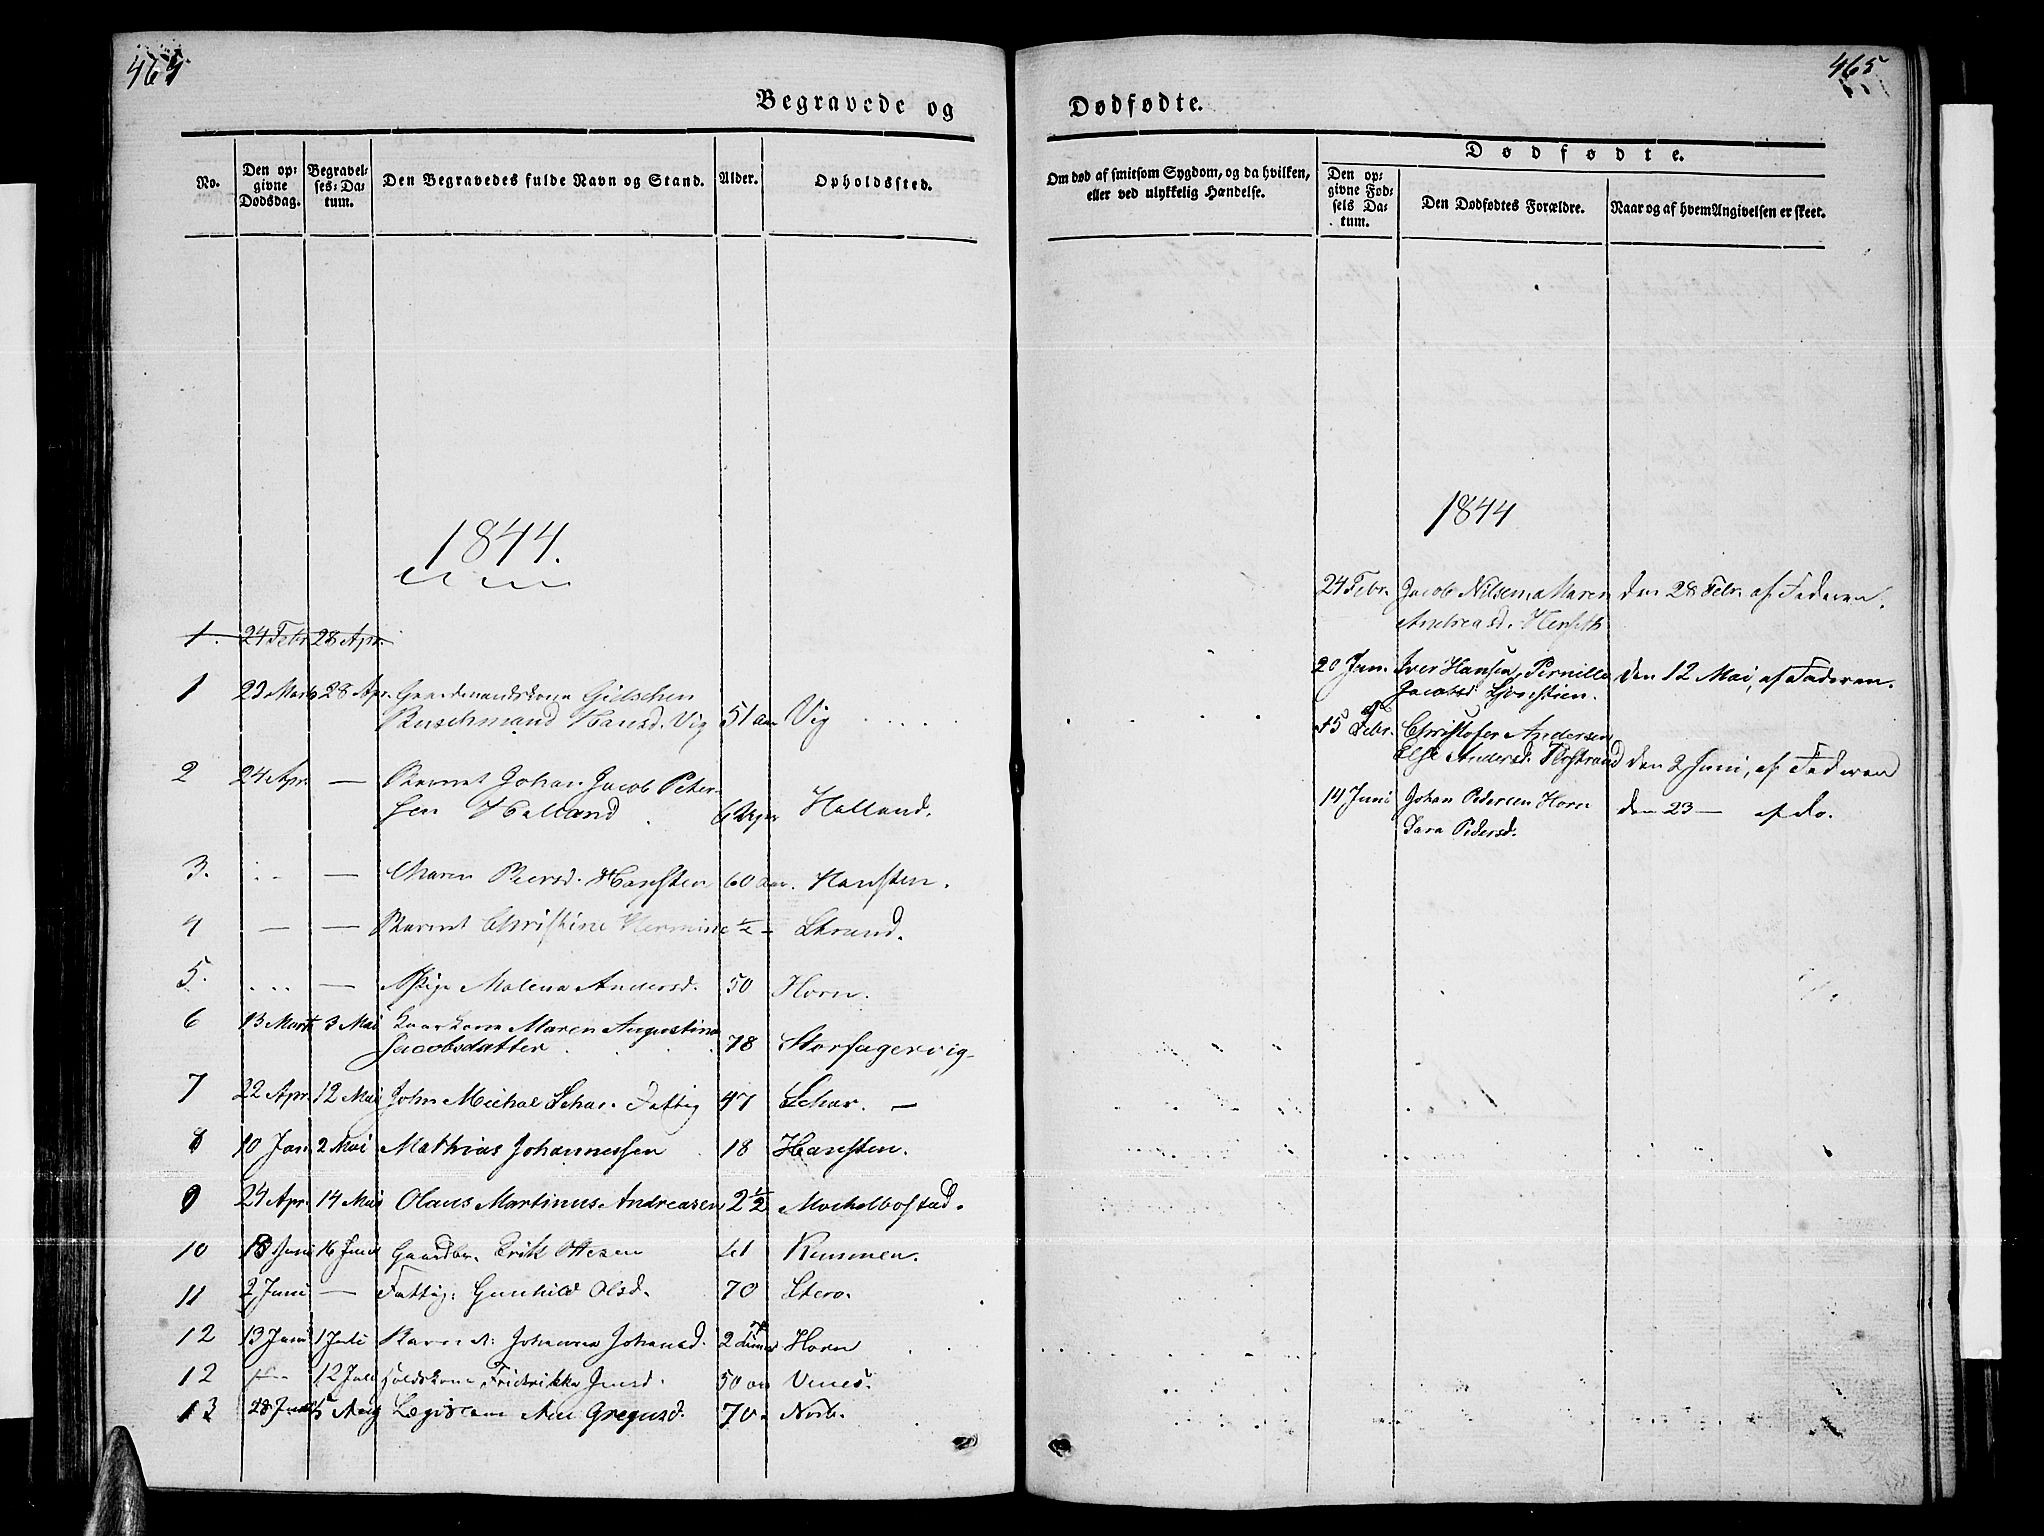 464
Begravede og
No.
Den opgivne Dødsdag.
Begravelses-Datum.
Den Begravedes fulde Navn og Stand.
Alder.
Opholdssted.
1844.
1. 24 Febr 28 Apr.
1 29 Marts 28 Apr. Gaardmandskone
Buschmand Hansd. Vig 51 aar Vig
2 24 Apr. — Barnet Johan Jacob Peter-
sen Holland 6 Uger Holland.
3. — Maren Peersd. Hansten 60 aar. Hansten.
4 — — Barnet Christine Hermine ½ - Strand.
5. — Pige Malena Andersd. 50 Horn.
6 13 Marts 3 Mai Kaarkone Maren Augustina
Jacobsdatter 78 Storfagervig
7 22 Apr. 12 Mai John Michal Schar. Fattig 47 Schar. —
8 10 Jan 2 Mai Mathias Johannessen 18 Hansten.
9 24 Apr. 14 Mai Olaus Martinus Andreasen 2½
10 18 Juni 16 Juni Gaardbr. Erik Ottesen 41 Remmen.
11 2 Juni — Fattig: Gunhild Olsd. 70
12 13 Juni 1 Juli Barn Johanna Johansd. 2 Horn
12 12 Juli Fridrikka Jensd. 50 aar
13 28 Juni 5 Aug Gregusd. 70.
465
Dødfødte.
Om død af smitsom Sygdom, og da hvilken, eller ved ulykkelig Hændelse.
Dødfødte.
Den opgivne Fødsels Datum.
Den Dødfødtes Forældre.
Naar og af hvem Angivelsen er skeet.
1844
24 Febr. Jacob Nilsen, Maren den 28 Febr. af Faderen.
Andreasd.
20 Jan. Iver Hansen, Pernille den 12 Mai, af Faderen.
Jacobsd.
15 Febr. Christofer Andersen
Else Andersd. den 2 Juni, af Faderen
14 Juni Johan Pedersen Horn den 23 — af do.
Sara Pedersd.